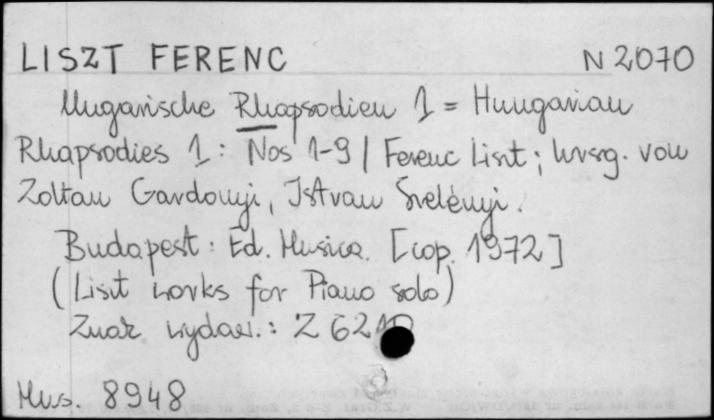 LISZT FERENC N 2070
Ungarische Rhapsodien 1 = Hungarian
Rhapsodies 1 : Nos 1-9 / Ferenc Liszt ; hrsg. von
Zoltan Gardonyi, Istvan Szelényi.
Budapest : Ed. Musica. [cop. 1972]
(Liszt works for Piano solo)
Znak wydaw. : Z 6210
Mus. 8948